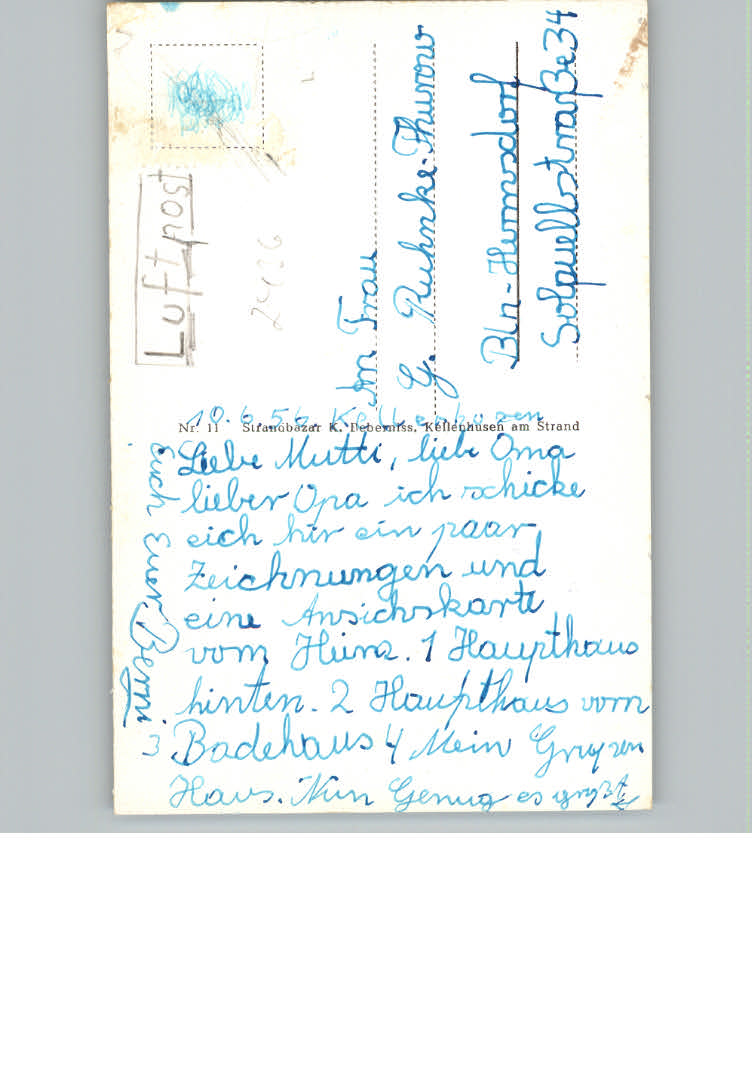 Luftpost
An Frau
G. Ruhnke-Thurow
Bln-Hermsdorf
Solquellstraße 34
10.6.56 Kellenhusen
Nr. 11 Strandbazar K. Kellenhusen am Strand
Liebe Mutti, liebe Oma
lieber Opa ich schicke
eich hir ein paar
Zeichnungen und
eine Ansichskarte
vom Heim. 1 Haupthaus
hinten. 2 Haupthaus vorn
3 Badehaus 4 Mein Grupen
Haus. Nun Genug es grüßt
Euch Euer Berni